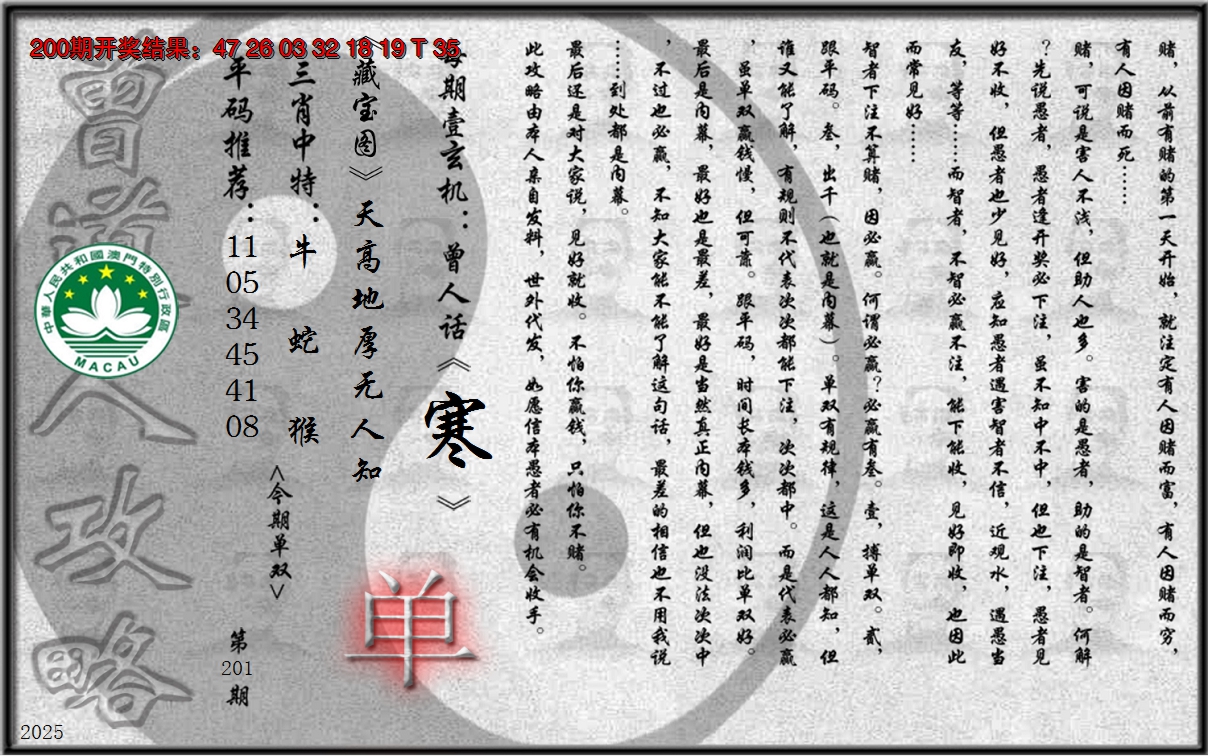 200期开奖结果：47 26 03 32 18 19 T 35
赌，从前有赌的第一天开始，就注定有人因赌而富，有人因赌而穷，
有人因赌而死……
赌，可说是害人不浅，但助人也多。害的是愚者，助的是智者。何解
？先说愚者，愚者逢开奖必下注，虽不知中不中，但也下注，愚者见
好不收，但愚者也少见好，应知愚者遇害智者不信，近观水，遇愚当
友，等等……而智者，不智必赢不注，能下能收，见好即收，也因此
而常见好……
智者下注不算赌，因必赢。何谓必赢？必赢有叁。壹，搏单双。贰，
跟平码。叁，出千（也就是内幕）。单双有规律，这是人人都知，但
谁又能了解，有规则不代表次次都能下注，次次都中。而是代表必赢
，虽单双赢钱慢，但可靠。跟平码，时间长本钱多，利润比单双好。
最后是内幕，最好也是最差，最好是当然真正内幕，但也没法次次中
，不过也必赢，不知大家能不能了解这句话，最差的相信也不用我说
……到处都是内幕。
最后还是对大家说，见好就收。不怕你赢钱，只怕你不赌。
此攻略由本人亲自发料，世外代发，如愿信本愚者必有机会收手。
每期壹玄机：曾人话《寒》
《藏宝图》天高地厚无人知
单
三肖中特：牛 蛇 猴
<今期单双>
平码推荐：11 05 34 45 41 08
第201期
曾道人攻略
中華人民共和國澳門特別行政區
MACAU
2025